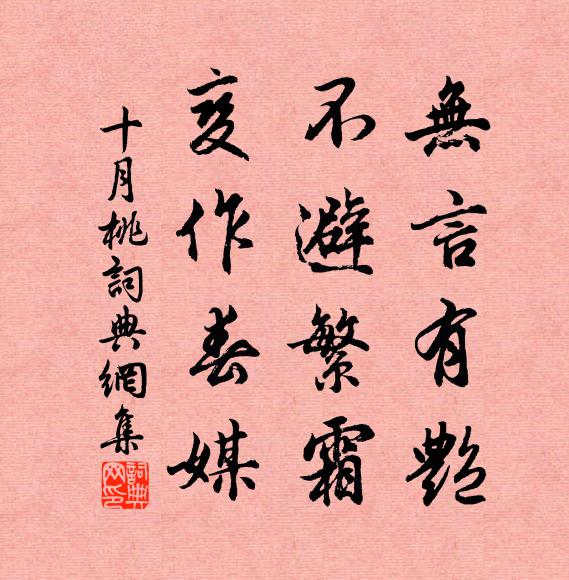 無言有艷
不避繁霜
变作春媒
十月桃詞典網集
詞典网印